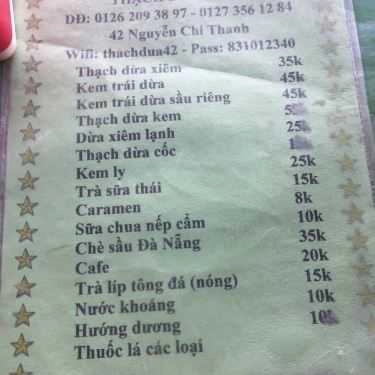 DĐ: 0126 209 38 97 - 0127 356 12 84
42 Nguyễn Chí Thanh
Wifi: thachdua42 - Pass: 831012340
Thạch dừa xiêm 35k
Kem trái dừa 45k
Kem trái dừa sầu riêng 45k
Thạch dừa kem
Dừa xiêm lạnh
Thạch dừa cốc
Kem ly 25k
Trà sữa thái 15k
Caramen 8k
Sữa chua nếp cẩm 10k
Chè sầu Đà Nẵng 35k
Cafe 20k
Trà líp tông đá (nóng) 15k
Nước khoáng 10k
Hướng dương
Thuốc lá các loại